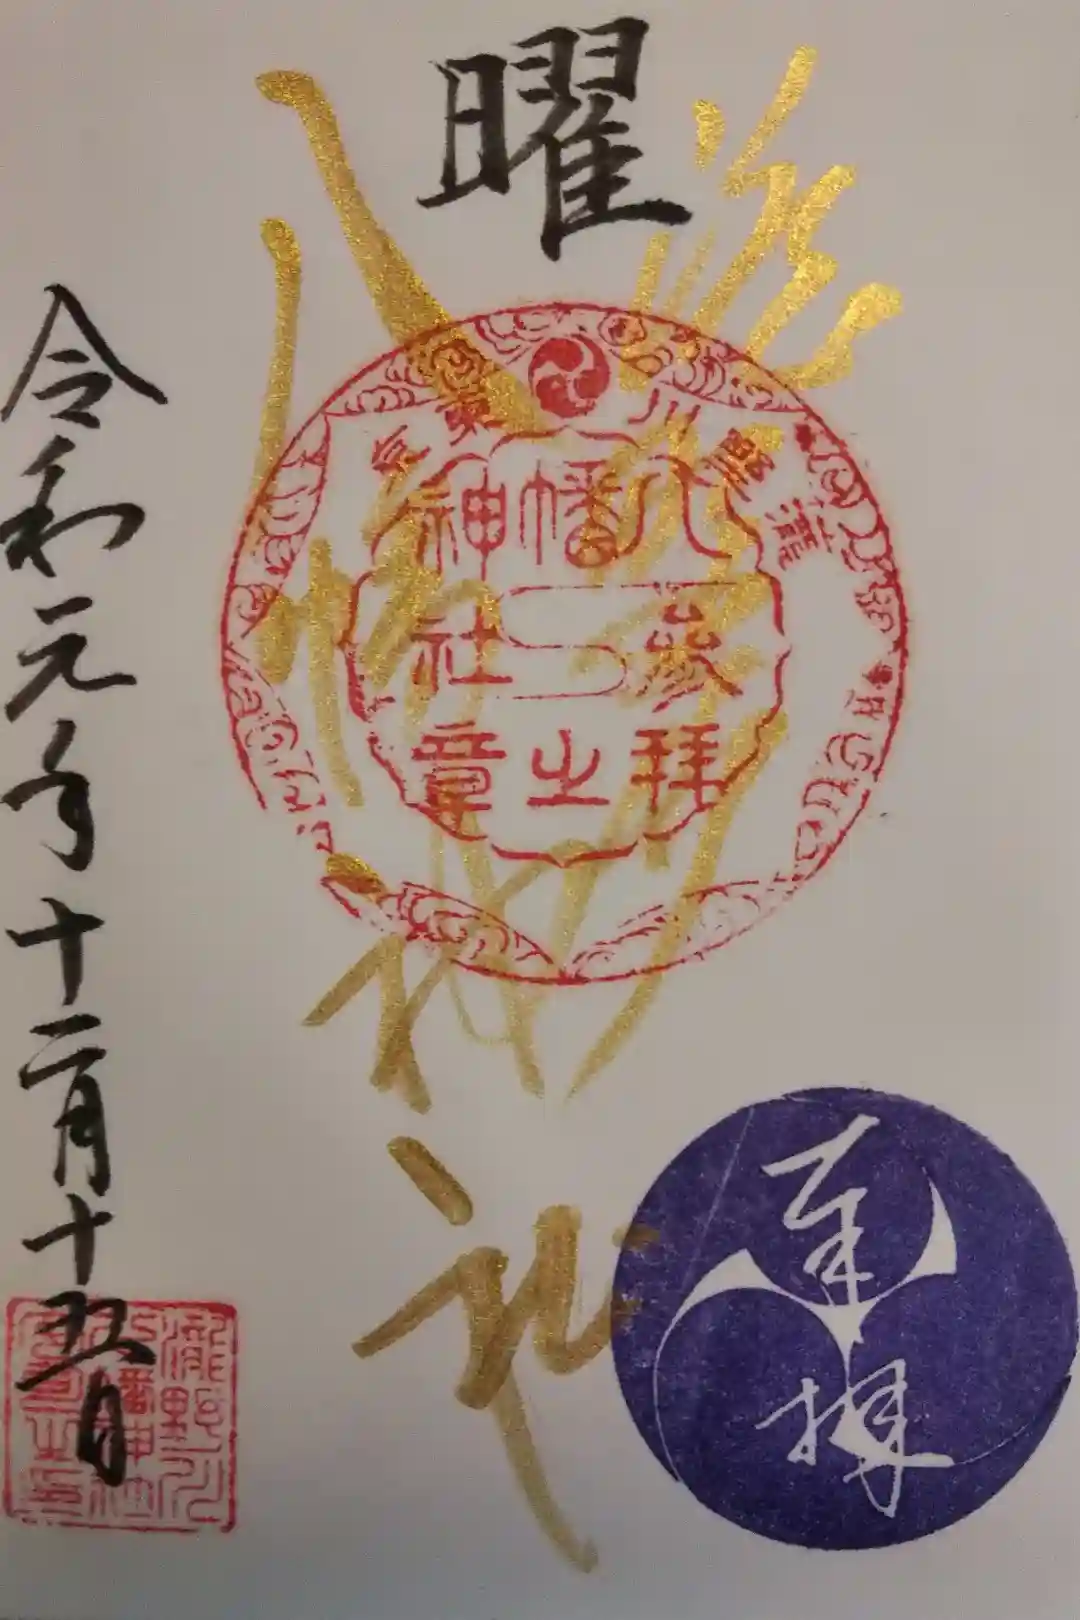 曜
滝野川
八幡神社
東京
瀧野川
八幡神社
参拝之章
奉拝
令和元年十二月十五日